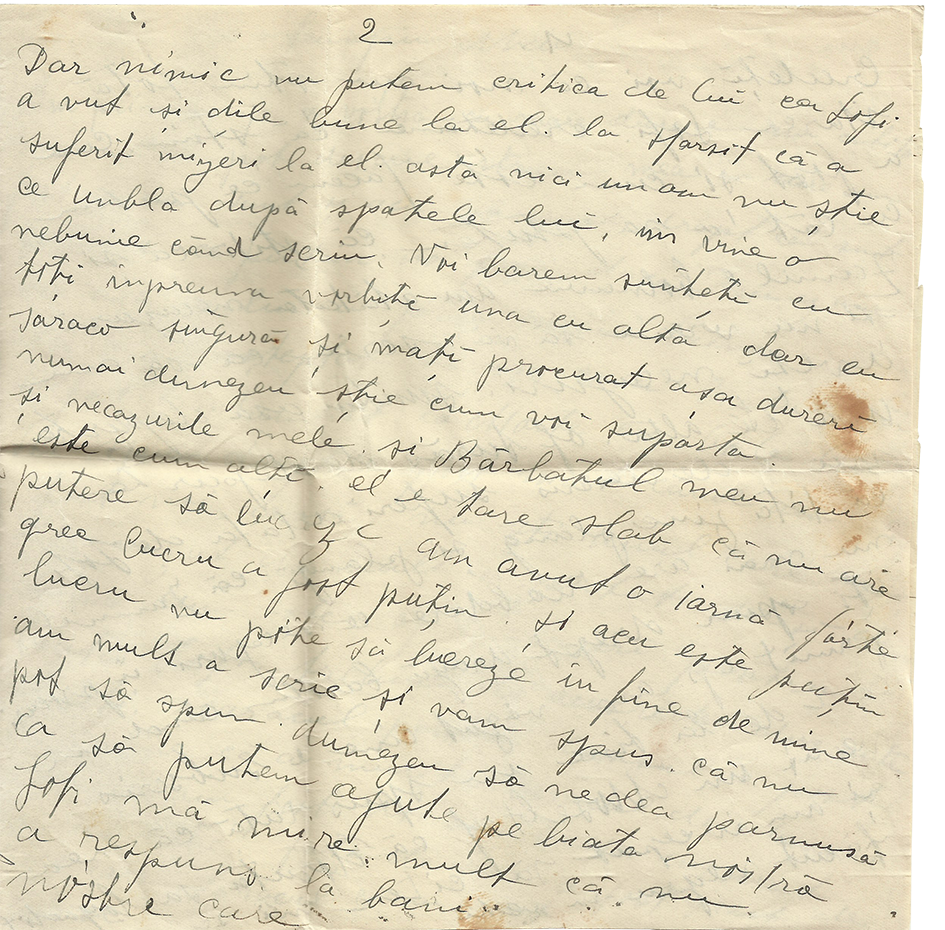 2
Dar nimic nu putem critica de lui ca Sofi
a vut si dile bune la el. la sfarsit că a
suferit mizeri la el. asta nici un am nu știe
ce unbla după spatele lui, im vine o
nebunie când scriu. Voi barem sunteti cu
toti inpreuna vorbiti una cu alta. dar eu
săraco singură si mati procurat asa dureri
numai dumnezeu stie cum voi suporta
si necazurile mele. si Bărbatul meu nu
este cum alti. el e tare slab că nu are
putere să am avut o iarnă forte
gree lucru a fost putin. si acu este putin
lucru nu pote să lucreze in fine de mine
am mult a scrie si vam spus. că nu
pot să spun. dumnezeu să ne dea parnusă
ca să putem ajute pe biata nostră
Sofi mă mira mult că nu
a respuns la bani
nostre care